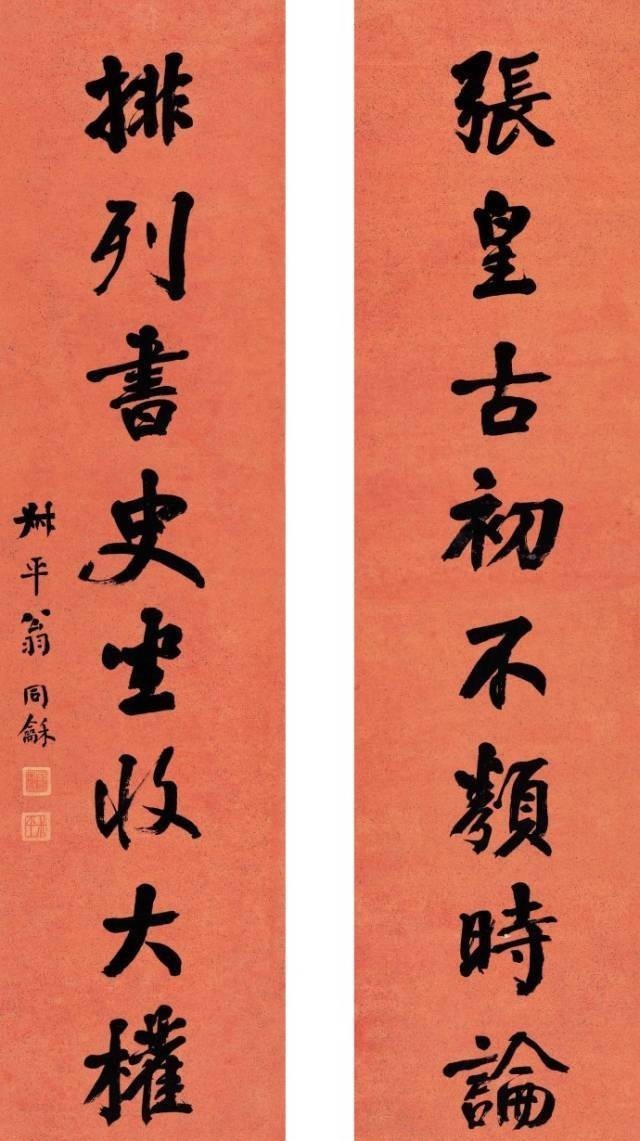 張皇古初不類時論
排列書史坐收大權
叔平翁同龢